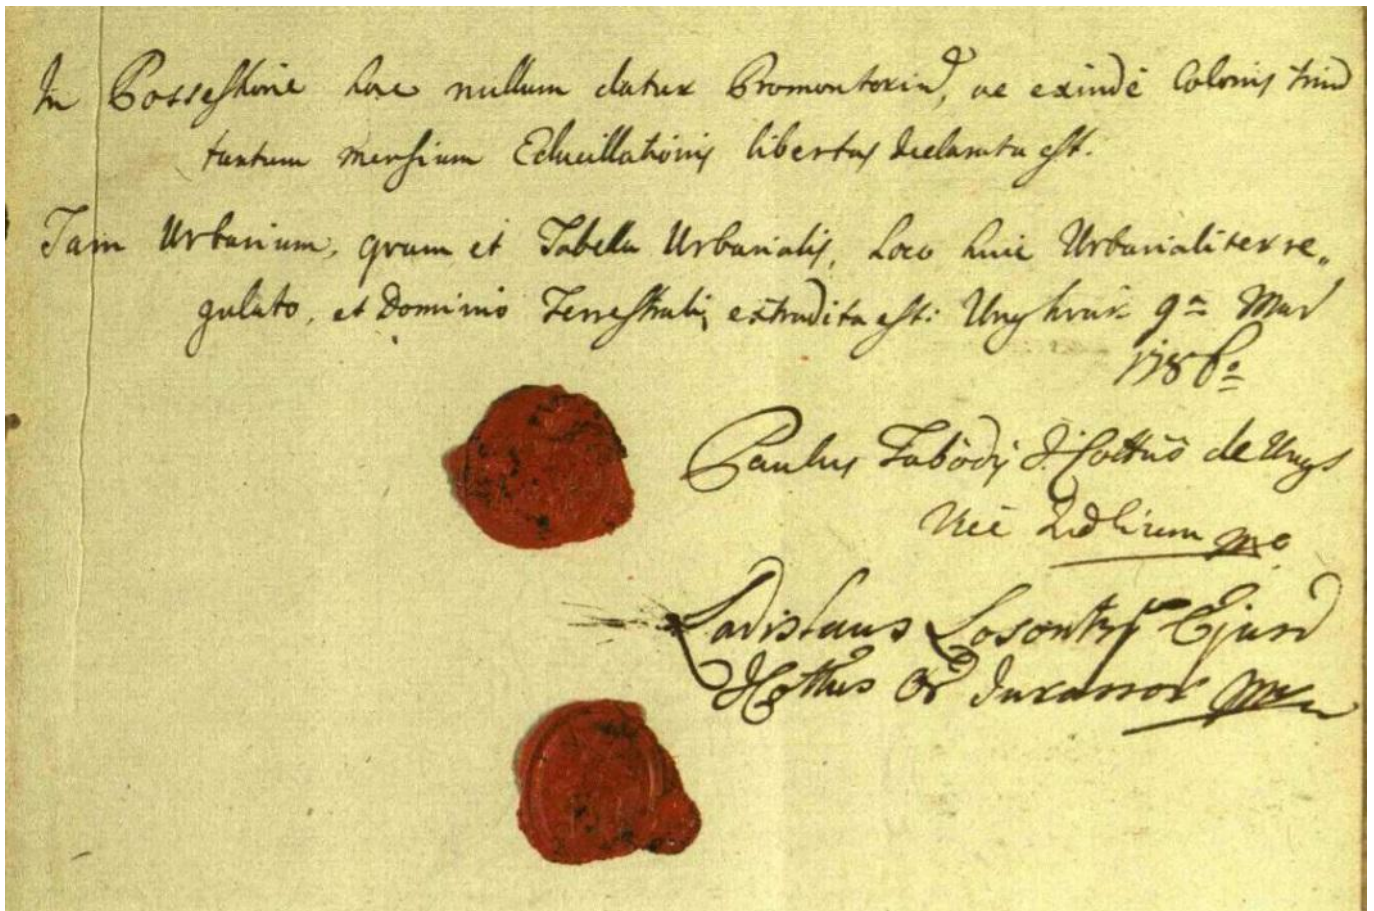 In Possessione hac nullum datur Promontorium, ac exinde Colonis trium
tantum mensium Educillationis libertas declarata est.
Tam Urbarium, quam et Tabella Urbarialis, Loco huic Urbarialiter re„
gulato, et Dominio Terrestrali extradita est: Unghvár 9ª Mar
Paulus Tabódy I. Cottus de Ungh
Vice Judlium mp
Ladislaus Losontzy Ejusd
I Cottus Ord Jurassor mp